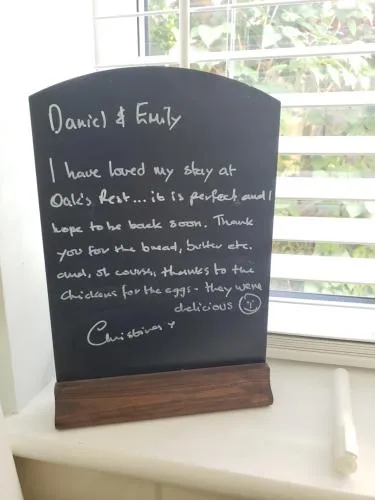 Daniel & Emily
I have loved my stay at
Oak's Rest... it is perfect and I
hope to be back soon. Thank
you for the bread, butter etc.
and, of course, thanks to the
chickens for the eggs - they were
delicious ☺
Christina x